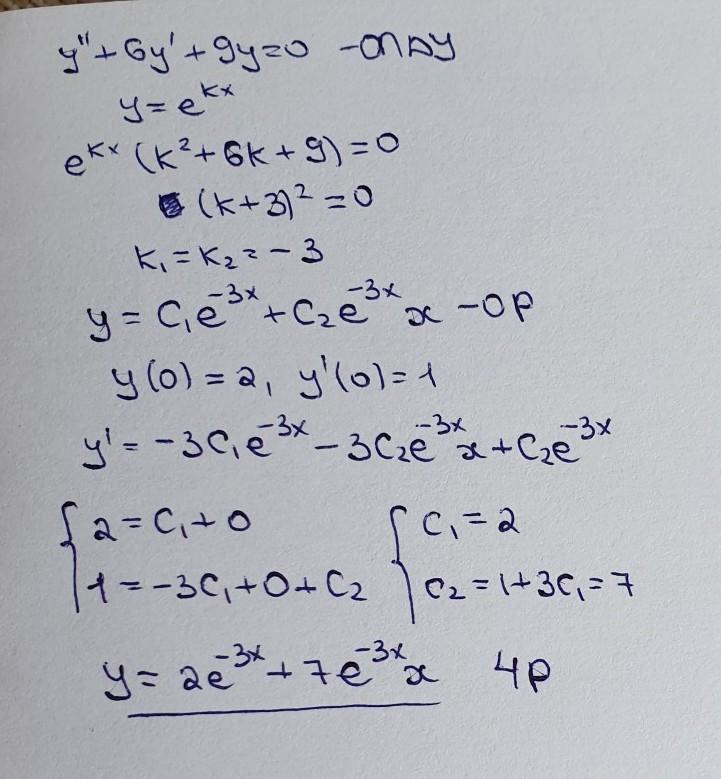 y'' + 6y' + 9y = 0 - ОЛДУ
y = e^{kx}
e^{kx} (k² + 6k + 9) = 0
(k+3)² = 0
k₁ = k₂ = -3
y = C₁e^{-3x} + C₂e^{-3x} x - ОР
y(0) = 2, y'(0) = 1
y' = -3C₁e^{-3x} - 3C₂e^{-3x} x + C₂e^{-3x}
{ 2 = C₁ + 0 { C₁ = 2
1 = -3C₁ + 0 + C₂ C₂ = 1 + 3C₁ = 7
y = 2e^{-3x} + 7e^{-3x} x ЧР